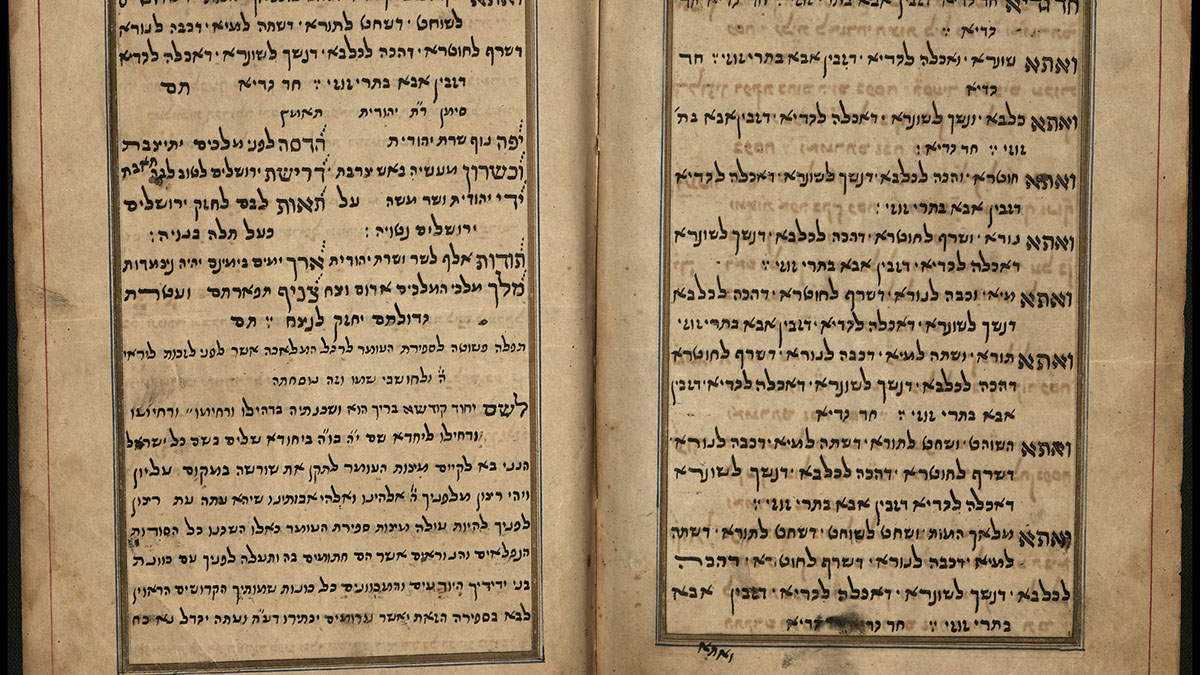 חד גדיא חד גדיא דזבין אבא בתרי זוזי חד
גדיא :
ואתא שונרא · ואכלה לגדיא · דזבין אבא בתרי זוזי : חד
גדיא
ואתא כלבא · ונשך לשונרא · דאכלה לגדיא · דזבין אבא בת'
זוזי : חד גדיא :
ואתא חוטרא · והכה לכלבא · דנשך לשונרא · דאכלה לגדיא
דזבין אבא בתרי זוזי :
ואתא נורא · ושרף לחוטרא · דהכה לכלבא · דנשך לשונרא
דאכלה לגדיא · דזבין אבא בתרי זוזי :
ואתא מיא · וכבה לנורא · דשרף לחוטרא · דהכה לכלבא
דנשך לשונרא · דאכלה לגדיא · דזבין אבא בתרי זוזי :
ואתא תורא · ושתה למיא · דכבה לנורא · דשרף לחוטרא
דהכה לכלבא · דנשך לשונרא · דאכלה לגדיא · דזבין
אבא בתרי זוזי : חד גדיא
ואתא השוחט · ושחט לתורא · דשתה למיא · דכבה לנורא ·
דשרף לחוטרא · דהכה לכלבא · דנשך לשונרא
דאכלה לגדיא · דזבין אבא בתרי זוזי :
ואתא מלאך המות · ושחט לשוחט · דשחט לתורא · דשתה
למיא · דכבה לנורא · דשרף לחוטרא · דהכה
לכלבא · דנשך לשונרא · דאכלה לגדיא · דזבין אבא
בתרי זוזי : חד גדיא חד גדיא
ואתא
ואתא
לשוחט · דשחט לתורא · דשתה למיא · דכבה לנורא
דשרף לחוטרא · דהכה לכלבא · דנשך לשונרא · דאכלה לגדיא
דזבין אבא בתרי זוזי : חד גדיא תם
סימן ר"ת יהודית תאומץ
יפה נוף שרת יהודית הדסה לפני מלכים יתיצבת
וכשרון מעשיה באש צרבת · דרישת ירושלים לטוב לבה תאבת
ידי יהודית ושר משה על תאות לבם לחזק ירושלים
ירושלים נטויה : כעל תלה בנויה :
תודות אלף לשר ושרת יהודית ארך ימים בימינם יהיה נצמדות
מלך מלכי המלכים ארום ונצח צניף תפארתם ועטרת
גדולתם יחזק לנצח : תם
תפלה פשוטה לספירת העומר לרגל המלאכה אשר לפני לזכות ליראי
ה' ולחושבי שמו וזה נוסחתה
לשם יחוד קודשא בריך הוא ושכנתיה בדחילו ורחימו" ורחימו
ודחילו ליחדא שם י"ה בו"ה ביחודא שלים בשם כל ישראל
הנני בא לקיים מצות העומר לתקן את שורשה במקום עליון
ויהי רצון מלפניך ה' אלהינו ואלהי אבותינו שיהא עתה עת רצון
לפניך להיות עולה מצות ספירת העומר כאלו השגנו כל הסודות
הנפלאים והנוראים אשר הם חתומים בה ותעלה לפניך עם כוונת
בני ידידיך היודעים והמכוונים כל כונות שמותיך הקדושים הראוין
לבא בספירה הזאת ואשר ערומים יכתירו דע"ה ועתה יגדל נא כח